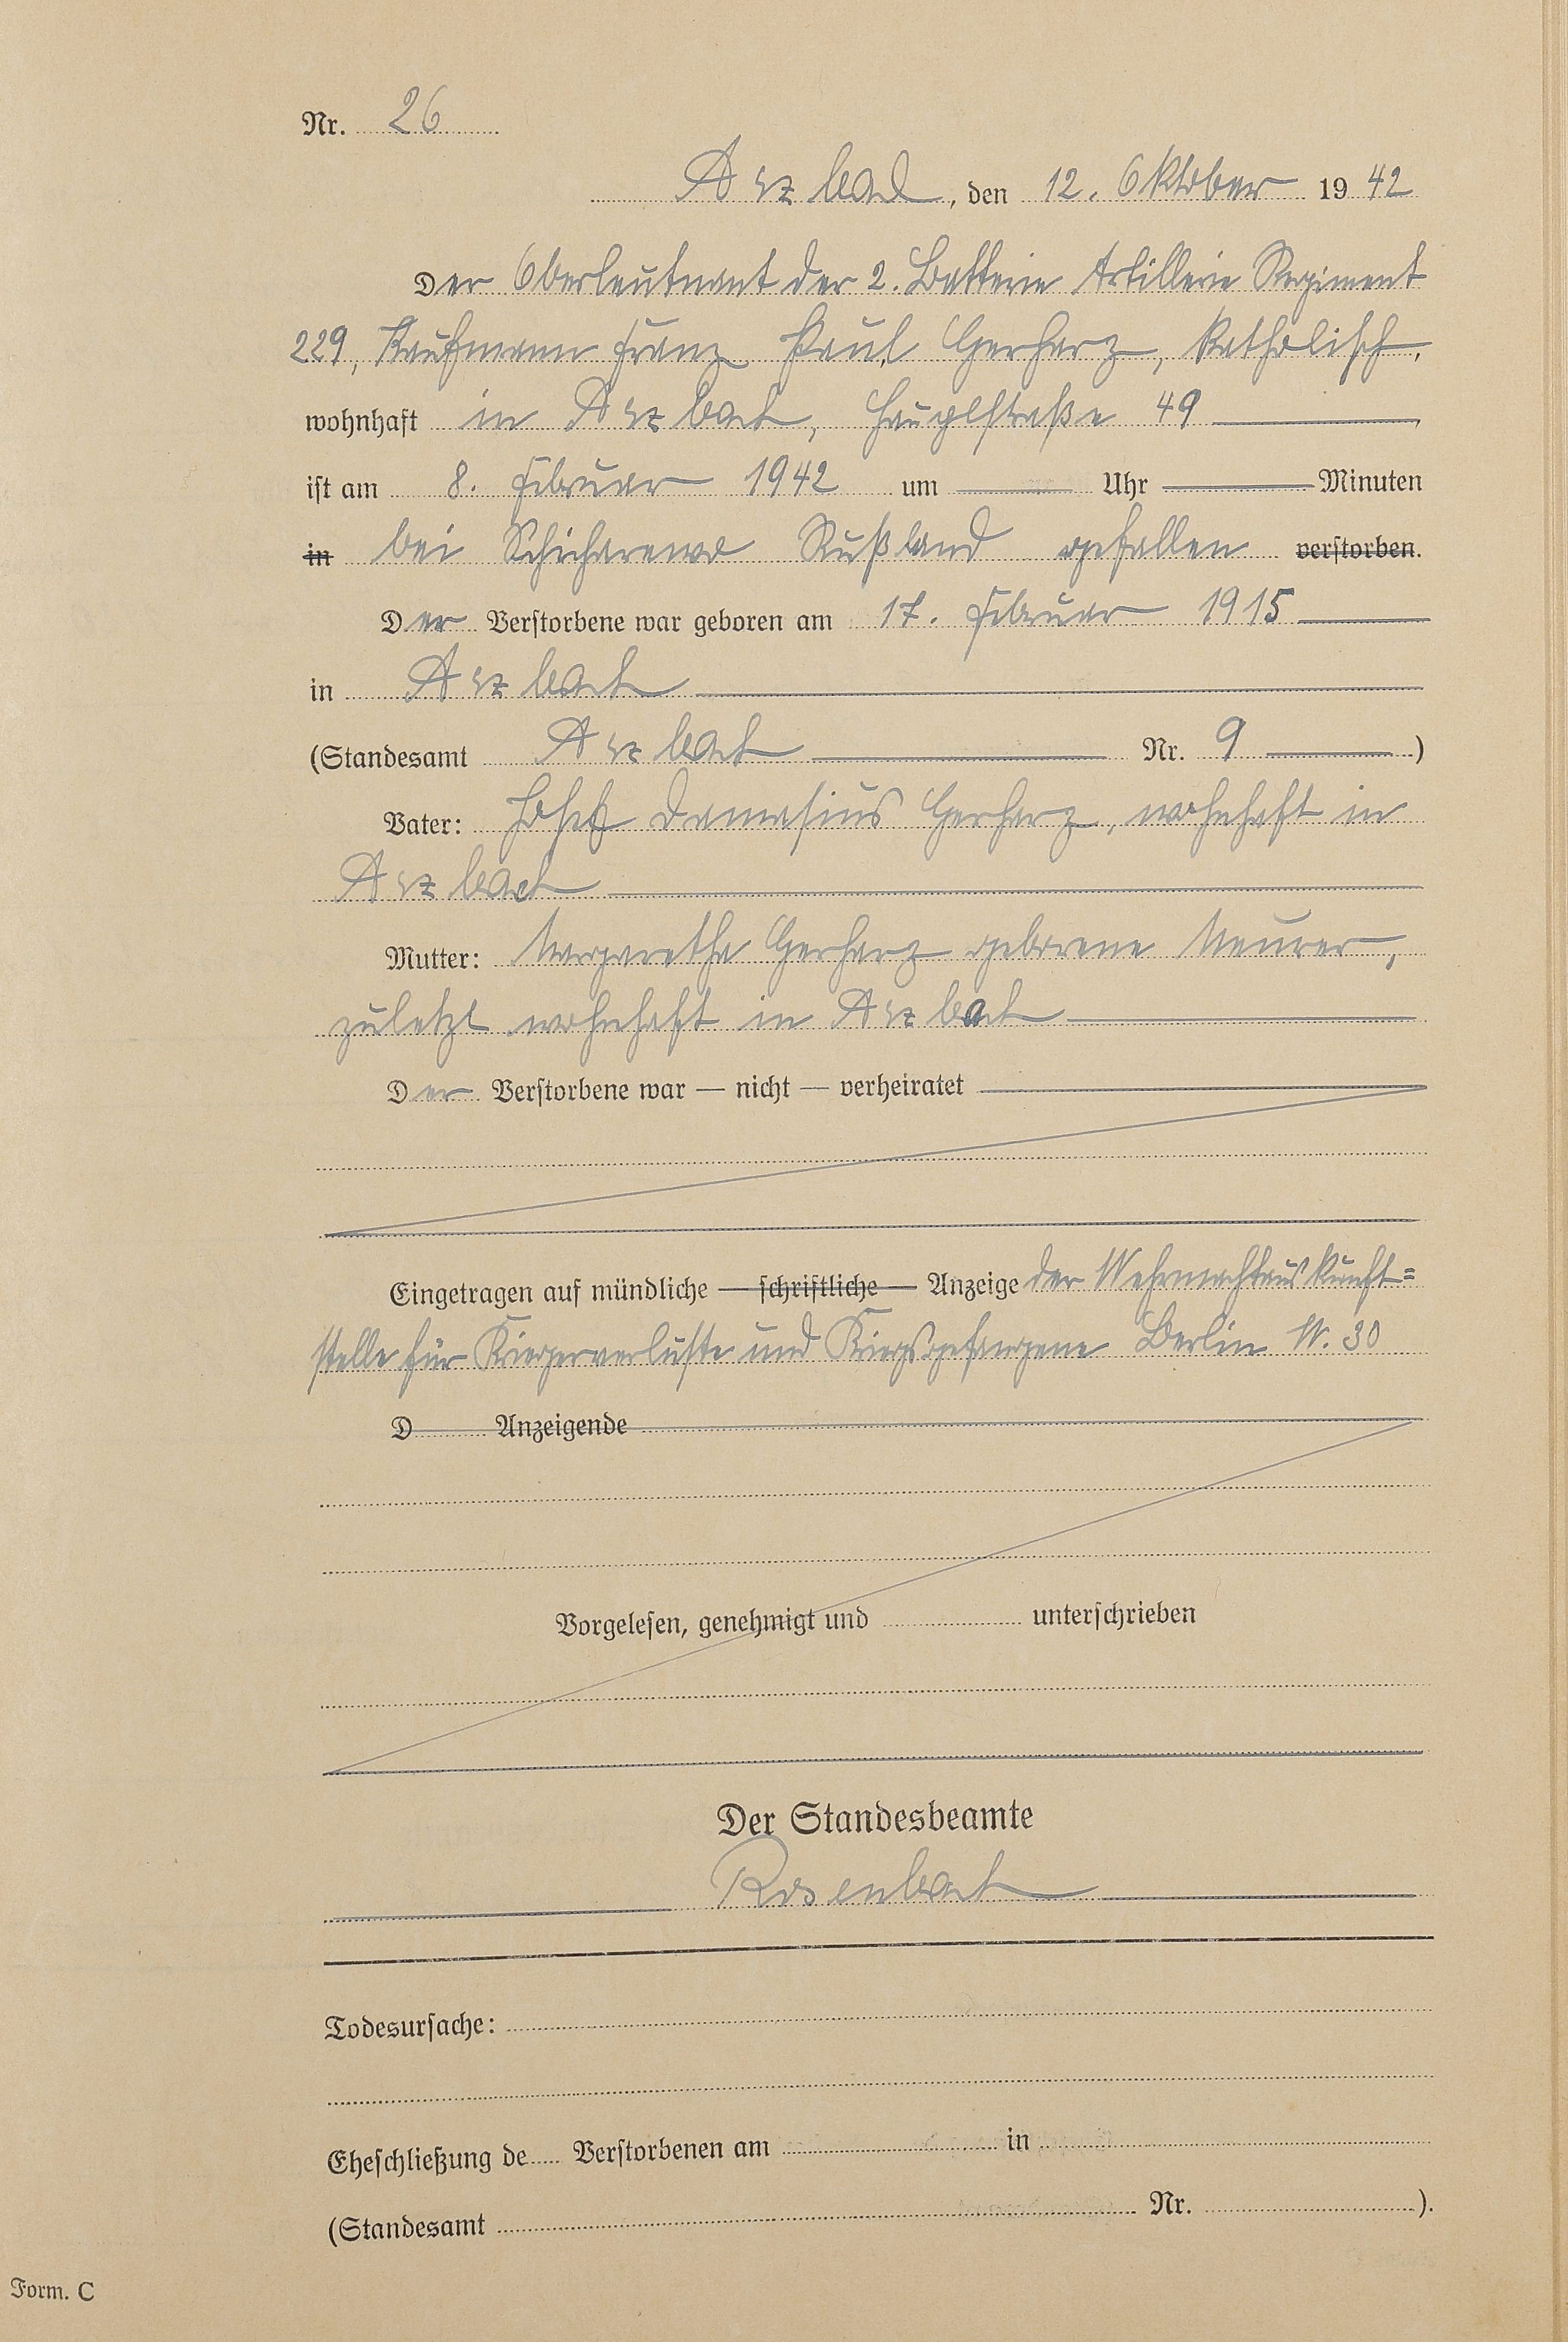 Nr. 26
Arzbach, den 12. Oktober 1942
Der Oberleutnant der 2. Batterie Artillerie Regiment
229, Kaufmann Franz Paul Gerharz, katholisch,
wohnhaft in Arzbach, Hauptstraße 49
ist am 8. Februar 1942 um Uhr Minuten
in bei Schicharewo Rußland gefallen verstorben.
Der Verstorbene war geboren am 17. Februar 1915
in Arzbach
(Standesamt Arzbach Nr. 9 )
Vater: Josef Damasius Gerharz, wohnhaft in
Arzbach
Mutter: Margaretha Gerharz geborene Neurer,
zuletzt wohnhaft in Arzbach
Der Verstorbene war — nicht — verheiratet
Eingetragen auf mündliche — schriftliche — Anzeige der Wehrmachtauskunft=
stelle für Kriegerverluste und Kriegsgefangene Berlin W. 30
D Anzeigende
Vorgelesen, genehmigt und unterschrieben
Der Standesbeamte
Rosenbach
Todesursache:
Eheschließung de Verstorbenen am in
(Standesamt Nr. ).
Form. C